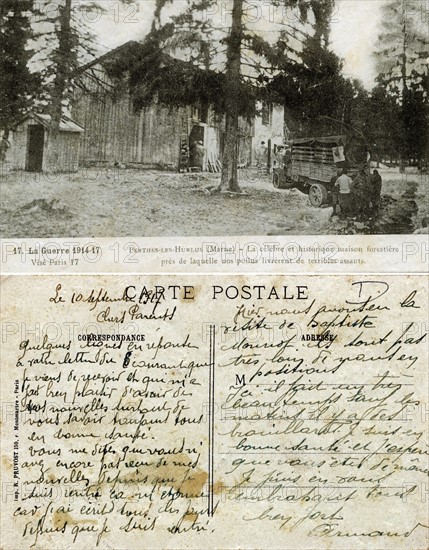 17. La Guerre 1914-17
Visé Paris 17
PERTHES-LES-HURLUS (Marne) – La célèbre et historique maison forestière
près de laquelle nos poilus livrèrent de terribles assauts.
CARTE POSTALE
CORRESPONDANCE
ADRESSE
M
Imp. E. PRUVOST 159, r. Montmartre - Paris
Le 10 Septembre 1917
Chers Parents
Quelques lignes en réponse
à votre lettre du
viens de recevoir et qui m'a
fait bien plaisir d'avoir de
vos nouvelles surtout de
vous savoir toujours tous
en bonne santé.
Vous me dites que vous n'
avez encore pas reçu de mes
nouvelles depuis que je
suis rentré ça
car j'ai écrit tous les jours
depuis que je suis rentré.
Hier nous avons eu la
visite de Baptiste
ils sont pas
très loin de nous en
positions
Ici il fait un
beau temps tous les
matins il y a des
brouillards je suis en
bonne santé et j'espère
que vous êtes de même
Je finis en vous
embrassant tous
bien fort
Armand